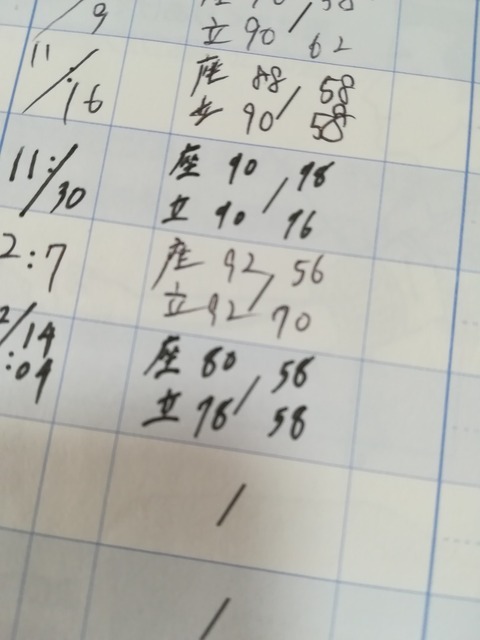 9
立 90 / 62
11/16
座 88 / 58
立 90 58
11/30
座 90 / 78
立 90 76
2:7
座 92 / 56
立 92 70
2/14
:04
座 80 / 58
立 78 58
/
/